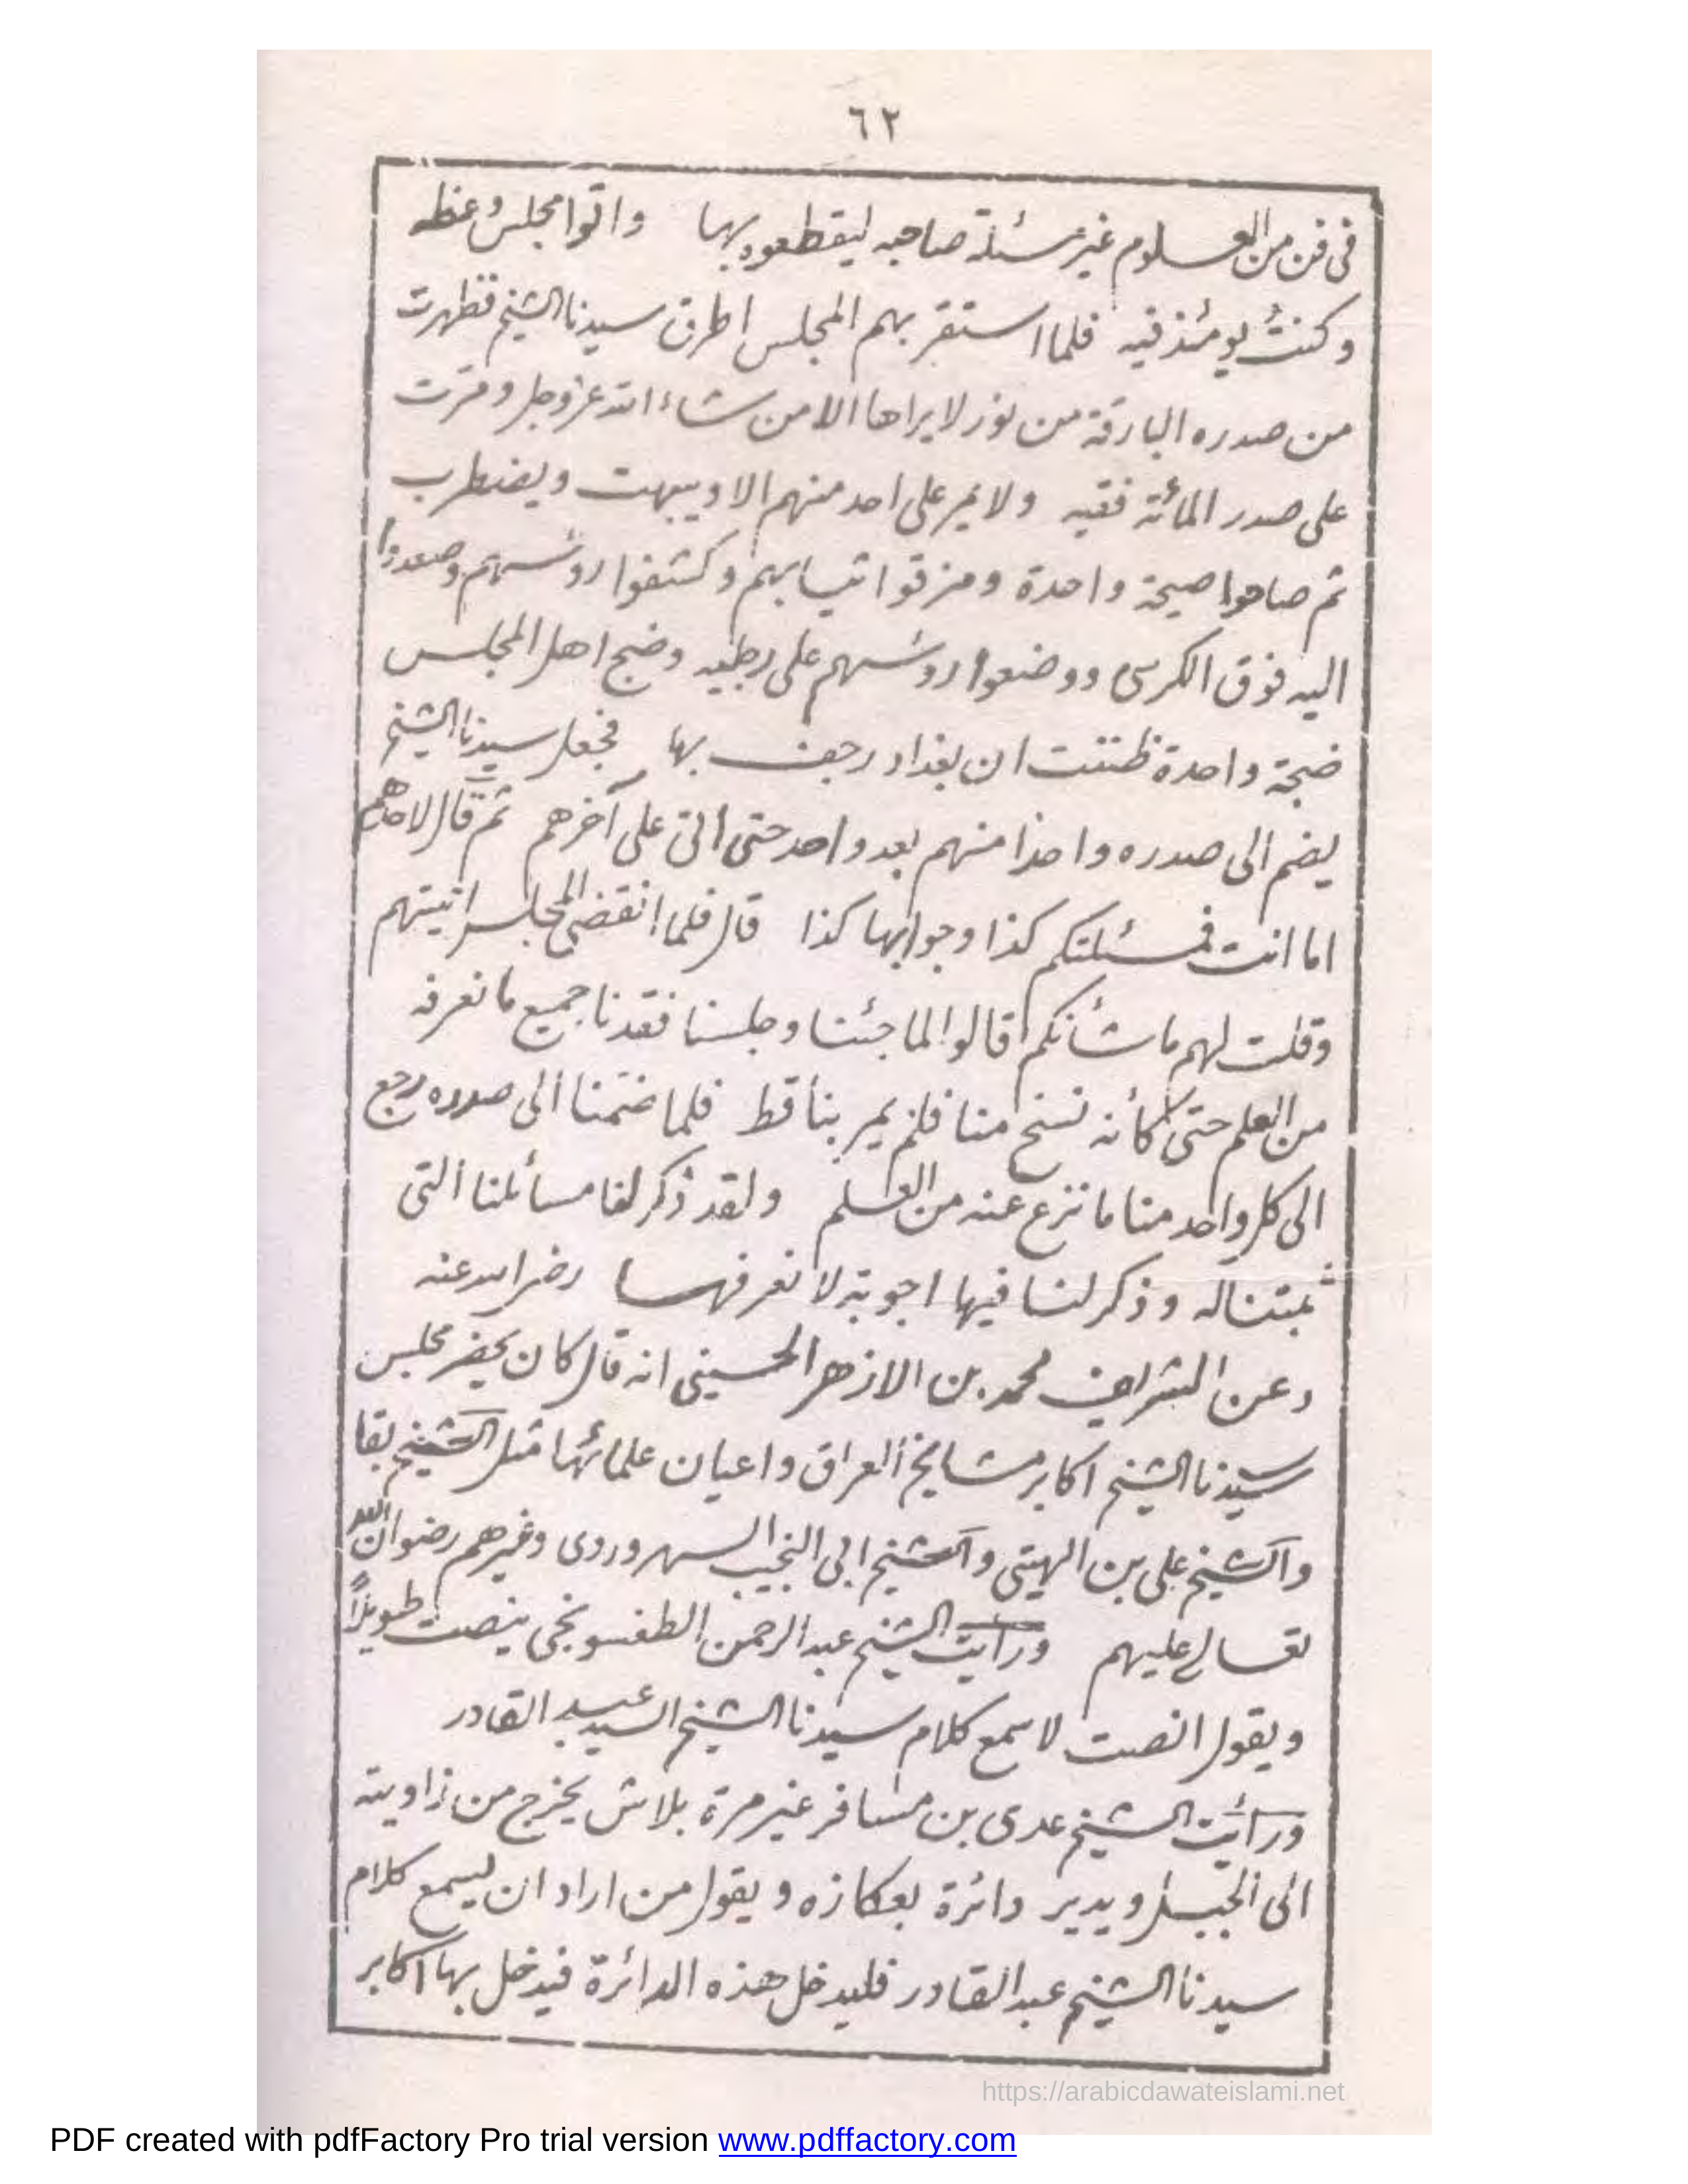 ٦٢
فى فن من العلوم غير مسئلة صاحبه ليقطعوه بها واتوا مجلس وعظه
وكنتُ يومئذ فيه فلما استقر بهم المجلس اطرق سيدنا الشيخ فظهرت
من صدره البارقة من نور لا يراها الا من شاء الله عز وجل ومرّت
على صدر المائة فقيه ولا يمر على احد منهم الا ويبهت ويضطرب
ثم صاحوا صيحة واحدة ومزقوا ثيابهم وكشفوا روسهم وصعدوا
اليه فوق الكرسى ووضعوا روسهم على رجليه وضج اهل المجلس
ضجة واحدة ظننت ان بغداد رجفت بها فجعل سيدنا الشيخ
يضم الى صدره واحدا منهم بعد واحد حتى اتى على آخرهم ثم قال لاحدهم
اما انت فمسئلتكم كذا وجوابها كذا قال فلما انقضى المجلس اتيتهم
وقلت لهم ما شأنكم قالوا لما جئنا وجلسنا فقدنا جميع ما نعرفه
من العلم حتى كأنه نسخ منا فلم يمر بنا قط فلما ضمنا الى صدره رجع
الى كل واحد منا ما نزع عنه من العلم ولقد ذكر لنا مسائلنا التى
بيتناله وذكر لنا فيها اجوبة لا نعرفها رضى الله عنه
وعن الشريف محمد بن الازهر الحسينى انه قال كان يحضر مجلس
سيدنا الشيخ اكابر مشايخ العراق واعيان علمائها مثل الشيخ بقا
والشيخ على بن الهيتى والشيخ ابى النجيب السهروردى وغيرهم رضوان الله
تعالى عليهم ورأيت الشيخ عبد الرحمن الطفسونجى ينصت طويلاً
ويقول انصت لاسمع كلام سيدنا الشيخ السيد عبد القادر
ورأيت الشيخ عدى بن مسافر غير مرة بلاش يخرج من زاويته
الى الجبل ويدير دائرة بعكازه ويقول من اراد ان يسمع كلام
سيدنا الشيخ عبد القادر فليدخل هذه الدائرة فيدخل بها اكابر
https://arabicdawateislami.net
PDF created with pdfFactory Pro trial version www.pdffactory.com